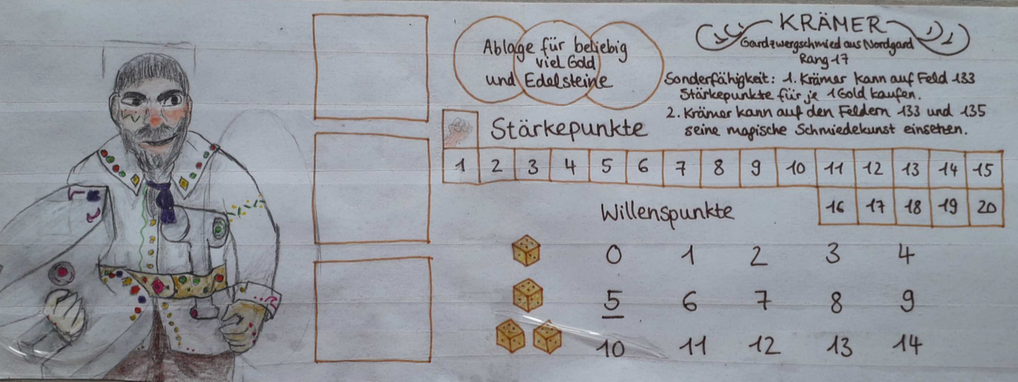 Ablage für beliebig
viel Gold
und Edelsteine
KRÄMER
Gardzwergschmied aus Nordgard
Rang 17
Sonderfähigkeit: 1. Krämer kann auf Feld 133
Stärkepunkte für je 1 Gold kaufen.
2. Krämer kann auf den Feldern 133 und 135
seine magische Schmiedekunst einsetzen.
Stärkepunkte
1 2 3 4 5 6 7 8 9 10 11 12 13 14 15
16 17 18 19 20
Willenspunkte
0 1 2 3 4
5 6 7 8 9
10 11 12 13 14